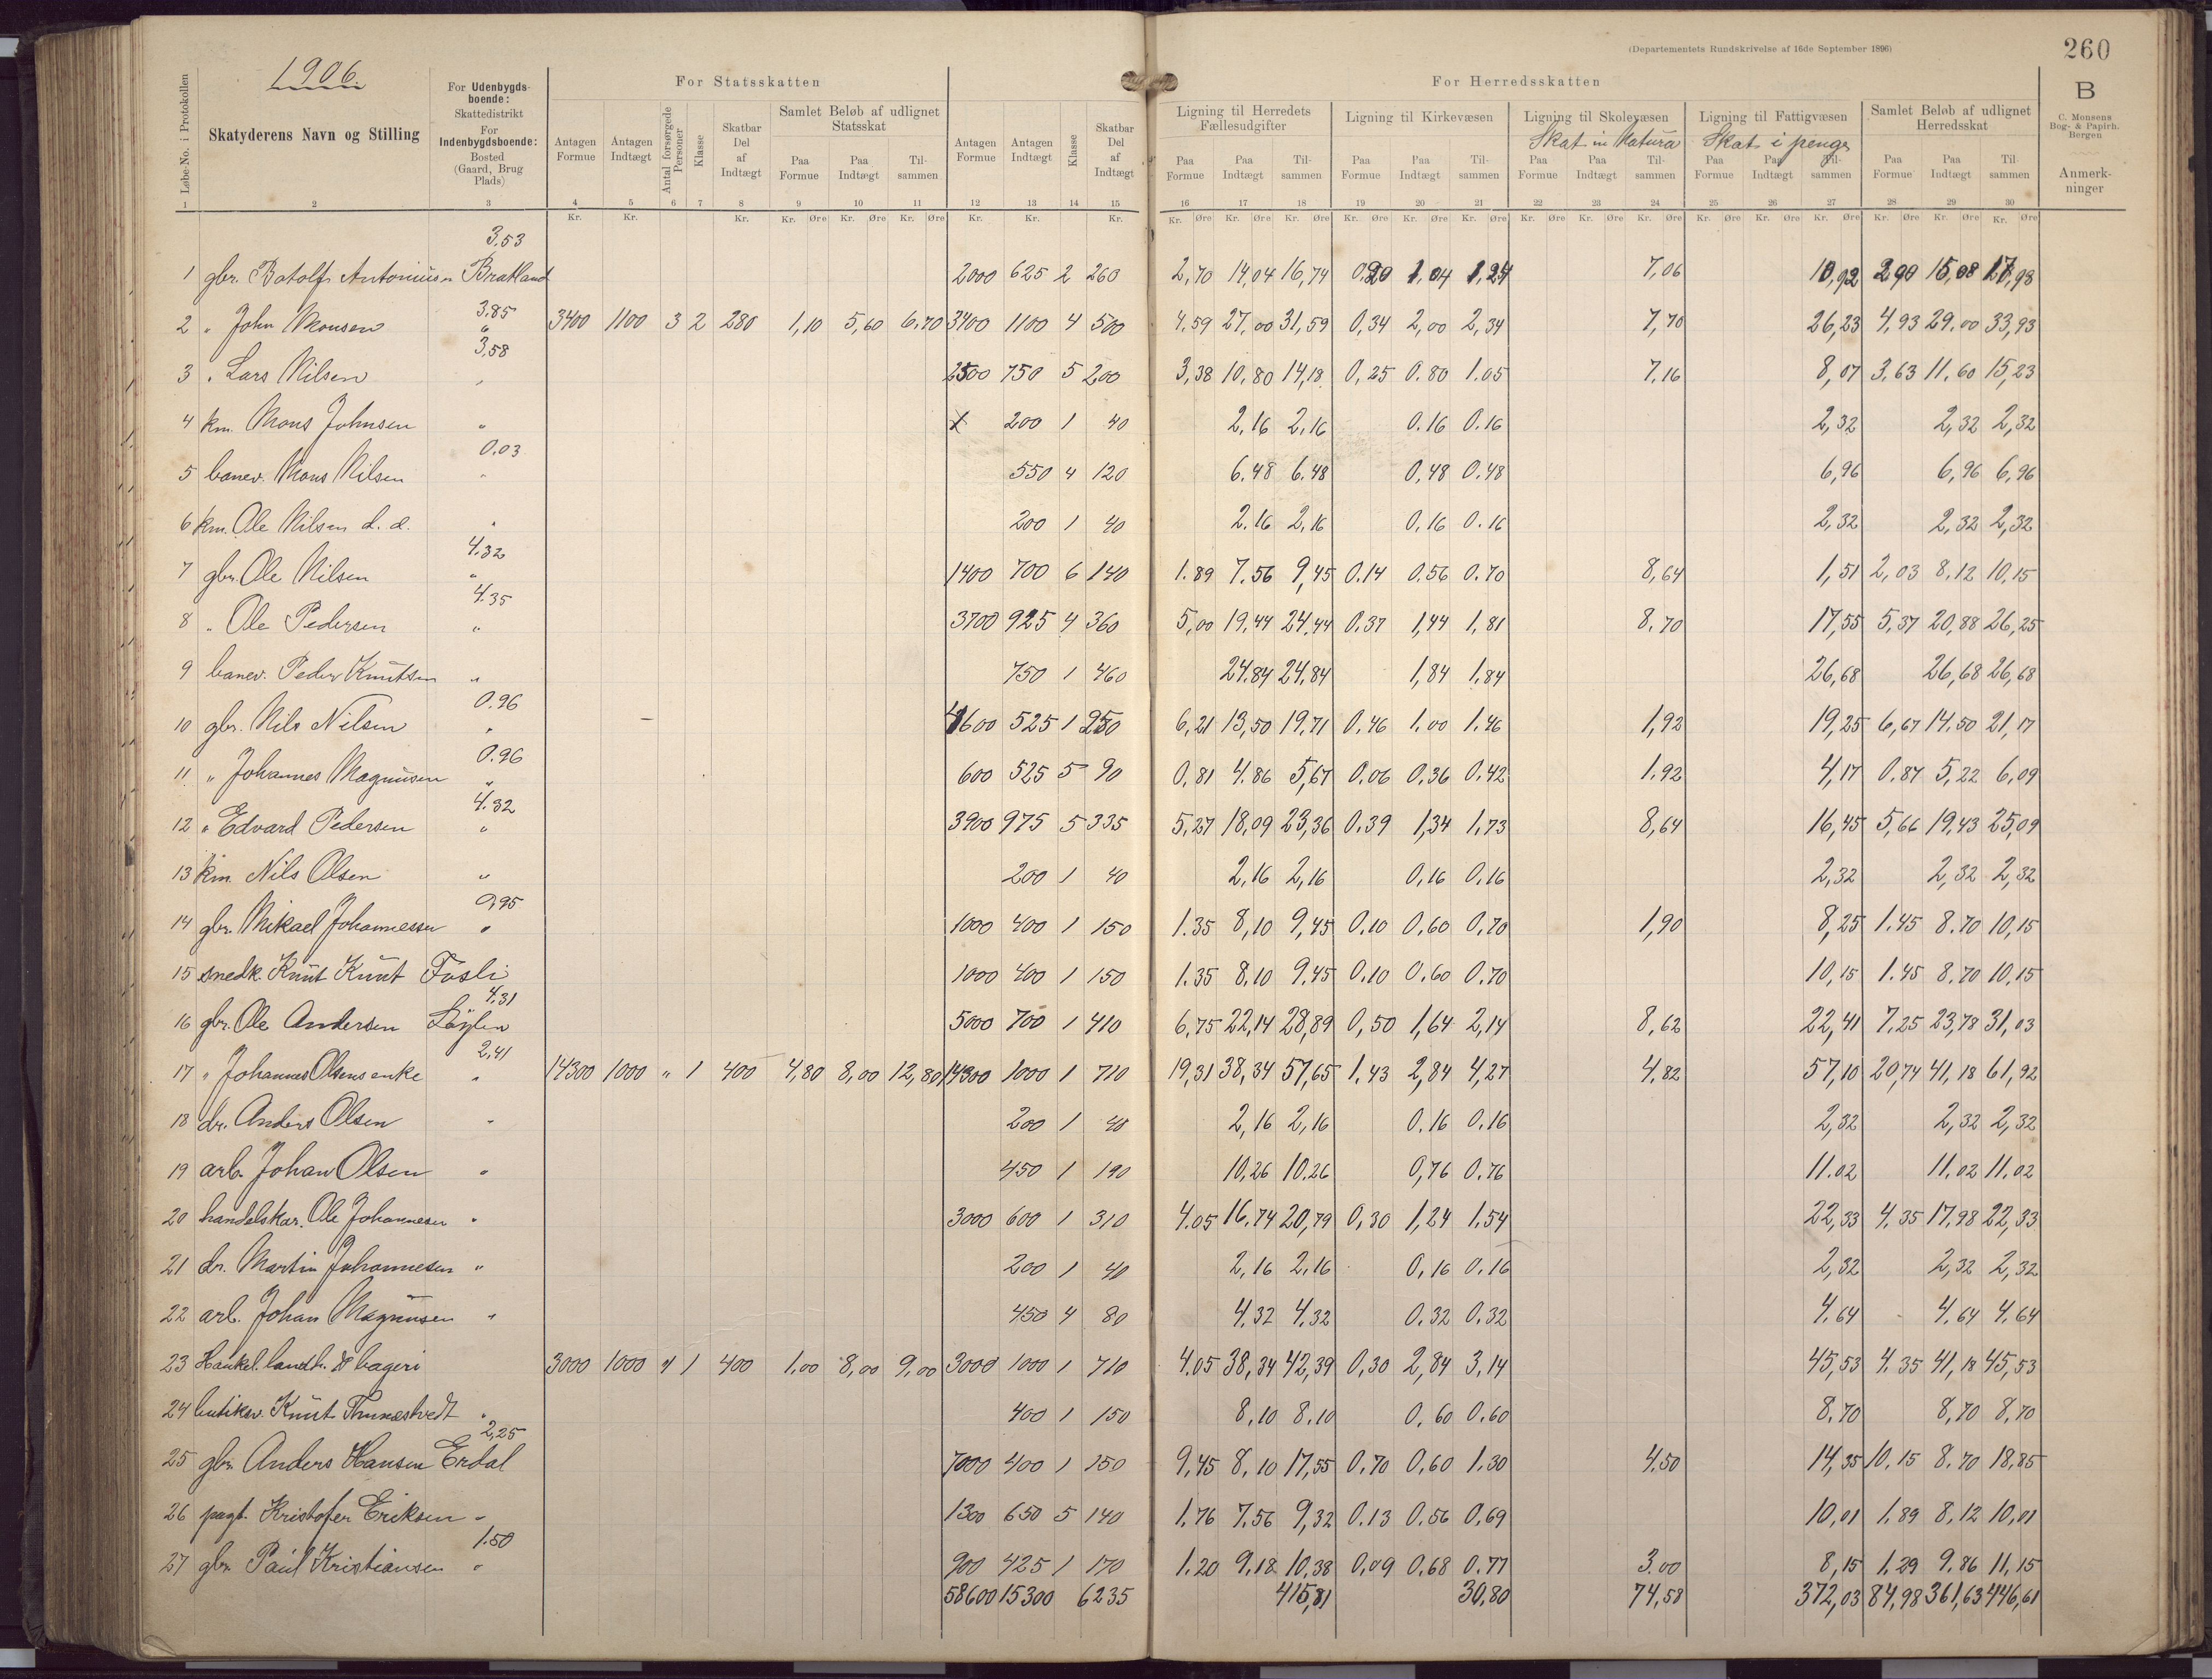 (Departementets Rundskrivelse af 16de September 1896)
260
1906.
For Statsskatten
For Herredsskatten
B
C. Monsens Bog- & Papirh. Bergen
Løbe-No. i Protokollen
Skatyderens Navn og Stilling
For Udenbygdsboende: Skattedistrikt For Indenbygdsboende: Bosted (Gaard, Brug Plads)
Antagen Formue Antagen Indtægt Antal forsørgede Personer Klasse Skatbar Del af Indtægt
Samlet Beløb af udlignet Statsskat
Paa Formue Paa Indtægt Tilsammen
Antagen Formue Antagen Indtægt Klasse Skatbar Del af Indtægt
Ligning til Herredets Fællesudgifter
Paa Formue Paa Indtægt Tilsammen
Ligning til Kirkevæsen
Paa Formue Paa Indtægt Tilsammen
Ligning til Skolevæsen
Skat in Natura
Paa Formue Paa Indtægt Tilsammen
Ligning til Fattigvæsen
Skat i penge
Paa Formue Paa Indtægt Tilsammen
Samlet Beløb af udlignet Herredsskat
Paa Formue Paa Indtægt Tilsammen
Anmerkninger
1 2 3 4 5 6 7 8 9 10 11 12 13 14 15 16 17 18 19 20 21 22 23 24 25 26 27 28 29 30
Kr. Kr. Kr. Kr. Øre Kr. Øre Kr. Øre Kr. Kr. Kr. Kr. Øre Kr. Øre Kr. Øre Kr. Øre Kr. Øre Kr. Øre Kr. Øre Kr. Øre Kr. Øre Kr. Øre Kr. Øre Kr. Øre Kr. Øre Kr. Øre Kr. Øre
3,53
1 gbr. Botolf Antoniusen Bratland 2000 625 2 260 2,70 14,04 16,74 0,20 1,04 1,24 7,06 10,92 2,90 15,08 17,98
3,85
2 " John Monsen " 3400 1100 3 2 280 1,10 5,60 6,70 3400 1100 4 500 4,59 27,00 31,59 0,34 2,00 2,34 7,70 26,23 4,93 29,00 33,93
3,58
3 " Lars Nilsen " 2500 750 5 200 3,38 10,80 14,18 0,25 0,80 1,05 7,16 8,07 3,63 11,60 15,23
4 km. Mons Johnsen " 200 1 40 2,16 2,16 0.16 0.16 2,32 2,32 2,32
0.03
5 banev. Mons Nilsen " 550 4 120 6.48 6.48 0,48 0.48 6,96 6,96 6,96
6 km. Ole Nilsen d. e. " 200 1 40 2.16 2,16 0,16 0.16 2,32 2,32 2,32
4.32
7 gbr. Ole Nilsen " 1400 700 6 140 1.89 7.56 9,45 0.14 0.56 0.70 8,64 1,51 2,03 8,12 10,15
4.35
8 " Ole Pedersen " 3700 925 4 360 5,00 19,44 24,44 0.37 1,44 1,81 8.70 17,55 5,37 20,88 26,25
9 banev. Peder Knutsen " 750 1 460 24.84 24,84 1,84 1.84 26,68 26,68 26,68
0.96
10 gbr. Nils Nilsen " 4600 525 1 250 6,21 13,50 19,71 0.46 1.00 1.46 1,92 19,25 6,67 14,50 21,17
0.96
11 " Johannes Magnusen " 600 525 5 90 0,81 4.86 5,67 0.06 0,36 0.42 1.92 4,17 0.87 5,22 6,09
4.32
12 " Edvard Pedersen " 3900 975 5 335 5,27 18,09 23,36 0.39 1,34 1,73 8,64 16,45 5,66 19,43 25,09
13 km. Nils Olsen " 200 1 40 2,16 2,16 0,16 0,16 2,32 2,32 2,32
0,95
14 gbr. Mikael Johannessen " 1000 400 1 150 1.35 8,10 9,45 0.10 0,60 0,70 1,90 8,25 1.45 8.70 10,15
15 snedk. Knut Knut Fosli 1000 400 1 150 1.35 8,10 9.45 0.10 0.60 0.70 10,15 1.45 8.70 10,15
4,31
16 gbr. Ole Andersen Løylen 5000 700 1 410 6,75 22,14 28,89 0,50 1,64 2,14 8,62 22,41 7,25 23,78 31,03
2,41
17 " Johannes Olsens enke " 14300 1000 " 1 400 4,80 8,00 12,80 14300 1000 1 710 19,31 38,34 57,65 1,43 2,84 4,27 4,82 57,10 20,74 41,18 61,92
18 dr. Anders Olsen " 200 1 40 2,16 2,16 0.16 0.16 2,32 2,32 2,32
19 arb. Johan Olsen " 450 1 190 10,26 10.26 0,76 0.76 11.02 11.02 11.02
20 handelskar. Ole Johannesen " 3000 600 1 310 4.05 16,74 20,79 0,30 1,24 1.54 22,33 4,35 17,98 22,33
21 dr. Martin Johannesen " 200 1 40 2,16 2,16 0,16 0.16 2,32 2,32 2,32
22 arb. Johan Magnusen " 450 4 80 4,32 4,32 0.32 0.32 4,64 4,64 4,64
23 Haukel. landh. & bageri 3000 1000 " 1 400 1.00 8,00 9,00 3000 1000 1 710 4.05 38,34 42,39 0,30 2,84 3,14 45,53 4,35 41,18 45,53
24 butiksv. Knut Thunestvedt " 400 1 150 8,10 8.10 0.60 0.60 8,70 8,70 8,70
2,25
25 gbr. Anders Hansen Erdal 7000 400 1 150 9,45 8,10 17,55 0.70 0,60 1.30 4.50 14,35 10,15 8,70 18,85
26 pagt. Kristofer Eriksen " 1300 650 5 140 1,76 7.56 9,32 0.13 0.56 0,69 10,01 1,89 8,12 10,01
1.50
27 gbr. Paul Kristiansen " 900 425 1 170 1.20 9,18 10,38 0,09 0,68 0.77 3.00 8,15 1,29 9,86 11,15
58600 15300 6235 415,81 30,80 74,58 372,03 84,98 361,63 446,61